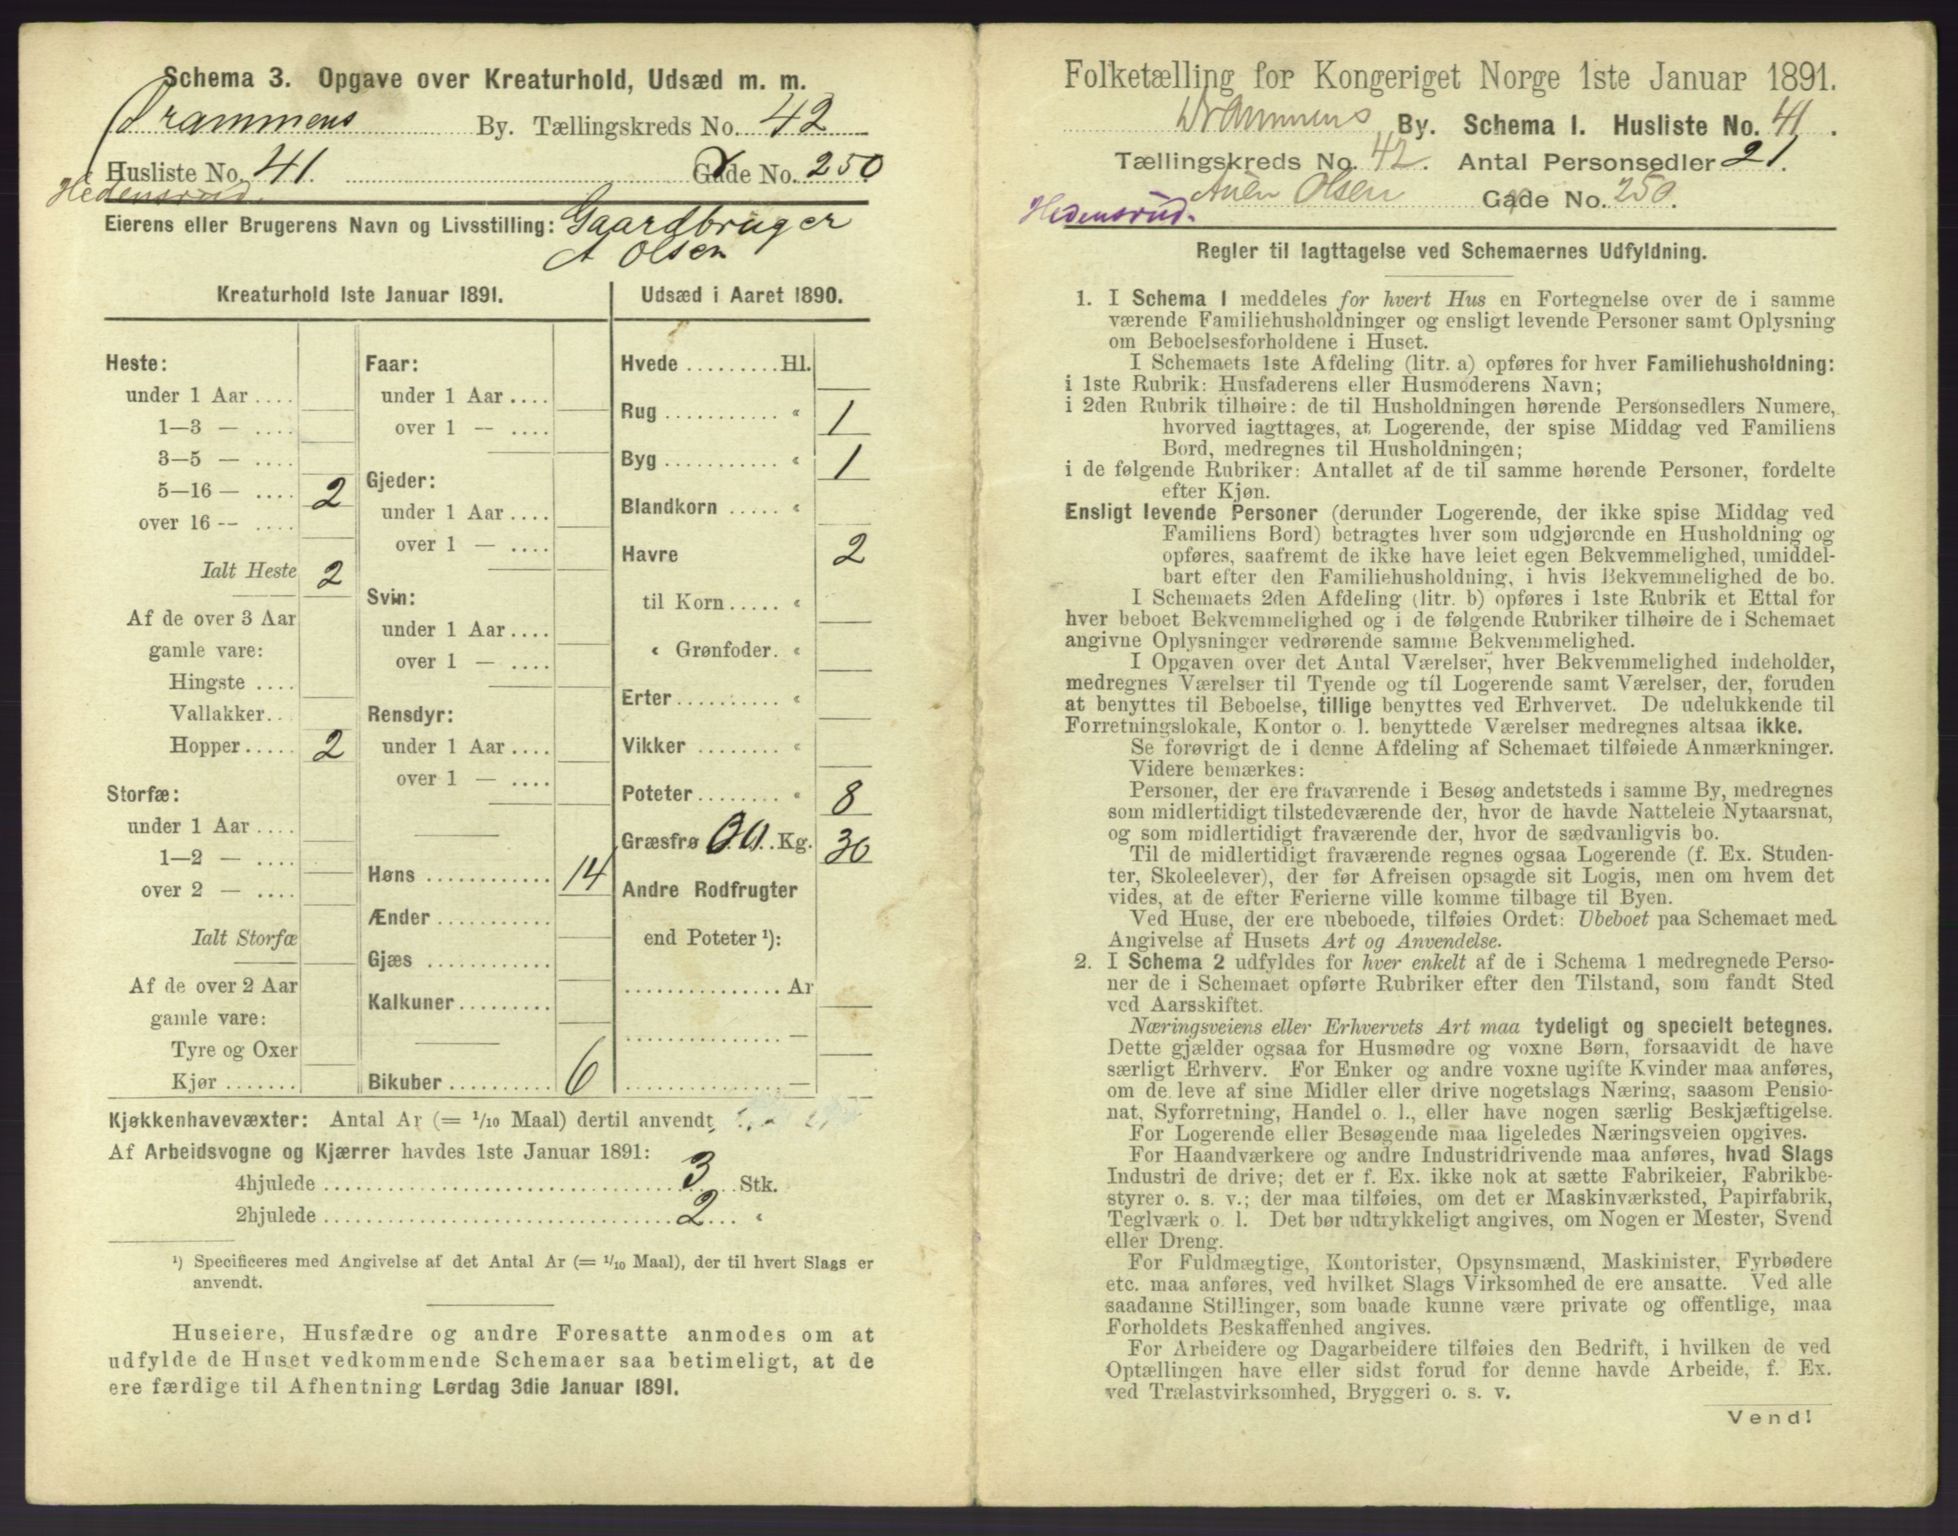 Schema 3. Opgave over Kreaturhold, Udsæd m. m.
Drammens By. Tællingskreds No. 42
Husliste No. 41. Gade No. 250
Hedensrud.
Eierens eller Brugerens Navn og Livsstilling: Gaardbruger
A Olsen
Kreaturhold 1ste Januar 1891.
Heste:
under 1 Aar ....
1—3 — ....
3—5 — ....
5—16 — .... 2
over 16 -- ....
Ialt Heste 2
Af de over 3 Aar
gamle vare:
Hingste ....
Vallakker..
Hopper..... 2
Storfæ:
under 1 Aar ....
1—2 — ....
over 2 — ....
Ialt Storfæ
Af de over 2 Aar
gamle vare:
Tyre og Oxer
Kjør .......
Faar:
under 1 Aar ....
over 1 -- ....
Gjeder:
under 1 Aar ....
over 1 — ....
Svin:
under 1 Aar ....
over 1 — ....
Rensdyr:
under 1 Aar ....
over 1 — ....
Høns ............ 14
Ænder ...........
Gjæs ............
Kalkuner.........
Bikuber.......... 6
Udsæd i Aaret 1890.
Hvede ......... Hl.
Rug ........... « 1
Byg ........... « 1
Blandkorn ..... «
Havre 2
til Korn..... «
« Grønfoder. «
Erter.......... «
Vikker ........ «
Poteter........ « 8
Græsfrø 30 .. Kg. 30
Andre Rodfrugter
end Poteter ¹):
............... Ar
............... —
............... —
Kjøkkenhavevæxter: Antal Ar (= 1/10 Maal) dertil anvendt
Af Arbeidsvogne og Kjærrer havdes 1ste Januar 1891:
4hjulede .......... 3 ... Stk.
2hjulede .......... 2 ... «
¹) Specificeres med Angivelse af det Antal Ar (= 1/10 Maal), der til hvert Slags er
anvendt.
Huseiere, Husfædre og andre Foresatte anmodes om at
udfylde de Huset vedkommende Schemaer saa betimeligt, at de
ere færdige til Afhentning Lørdag 3die Januar 1891.
Folketælling for Kongeriget Norge 1ste Januar 1891.
Drammens By. Schema I. Husliste No. 41.
Tællingskreds No. 42. Antal Personsedler 21.
Olsen Gade No. 250.
Hedensrud.
Regler til Iagttagelse ved Schemaernes Udfyldning.
1. I Schema I meddeles for hvert Hus en Fortegnelse over de i samme
værende Familiehusholdninger og ensligt levende Personer samt Oplysning
om Beboelsesforholdene i Huset.
I Schemaets 1ste Afdeling (litr. a) opføres for hver Familiehusholdning:
i 1ste Rubrik: Husfaderens eller Husmoderens Navn;
i 2den Rubrik tilhøire: de til Husholdningen hørende Personsedlers Numere,
hvorved iagttages, at Logerende, der spise Middag ved Familiens
Bord, medregnes til Husholdningen;
i de følgende Rubriker: Antallet af de til samme hørende Personer, fordelte
efter Kjøn.
Ensligt levende Personer (derunder Logerende, der ikke spise Middag ved
Familiens Bord) betragtes hver som udgjørende en Husholdning og
opføres, saafremt de ikke have leiet egen Bekvemmelighed, umiddel-
bart efter den Familiehusholdning, i hvis Bekvemmelighed de bo.
I Schemaets 2den Afdeling (litr. b) opføres i 1ste Rubrik et Ettal for
hver beboet Bekvemmelighed og i de følgende Rubriker tilhøire de i Schemaet
angivne Oplysninger vedrørende samme Bekvemmelighed.
I Opgaven over det Antal Værelser, hver Bekvemmelighed indeholder,
medregnes Værelser til Tyende og til Logerende samt Værelser, der, foruden
at benyttes til Beboelse, tillige benyttes ved Erhvervet. De udelukkende til
Forretningslokale, Kontor o. l. benyttede Værelser medregnes altsaa ikke.
Se forøvrigt de i denne Afdeling af Schemaet tilføiede Anmærkninger.
Videre bemærkes:
Personer, der ere fraværende i Besøg andetsteds i samme By, medregnes
som midlertidigt tilstedeværende der, hvor de havde Natteleie Nytaarsnat,
og som midlertidigt fraværende der, hvor de sædvanligvis bo.
Til de midlertidigt fraværende regnes ogsaa Logerende (f. Ex. Studen-
ter, Skoleelever), der før Afreisen opsagde sit Logis, men om hvem det
vides, at de efter Ferierne ville komme tilbage til Byen.
Ved Huse, der ere ubeboede, tilføies Ordet: Ubeboet paa Schemaet med
Angivelse af Husets Art og Anvendelse.
2. I Schema 2 udfyldes for hver enkelt af de i Schema 1 medregnede Perso-
ner de i Schemaet opførte Rubriker efter den Tilstand, som fandt Sted
ved Aarsskiftet.
Næringsveiens eller Erhvervets Art maa tydeligt og specielt betegnes.
Dette gjælder ogsaa for Husmødre og voxne Børn, forsaavidt de have
særligt Erhverv. For Enker og andre voxne ugifte Kvinder maa anføres,
om de leve af sine Midler eller drive nogetslags Næring, saasom Pensio-
nat, Syforretning, Handel o. l., eller have nogen særlig Beskjæftigelse.
For Logerende eller Besøgende maa ligeledes Næringsveien opgives.
For Haandværkere og andre Industridrivende maa anføres, hvad Slags
Industri de drive; det er f. Ex. ikke nok at sætte Fabrikeier, Fabrikbe-
styrer o. s. v.; der maa tilføies, om det er Maskinværksted, Papirfabrik,
Teglværk o. l. Det bør udtrykkeligt angives, om Nogen er Mester, Svend
eller Dreng.
For Fuldmægtige, Kontorister, Opsynsmænd, Maskinister, Fyrbødere
etc. maa anføres, ved hvilket Slags Virksomhed de ere ansatte. Ved alle
saadanne Stillinger, som baade kunne være private og offentlige, maa
Forholdets Beskaffenhed angives.
For Arbeidere og Dagarbeidere tilføies den Bedrift, i hvilken de ved
Optællingen have eller sidst forud for denne havde Arbeide, f. Ex.
ved Trælastvirksomhed, Bryggeri o. s. v.
Vend!